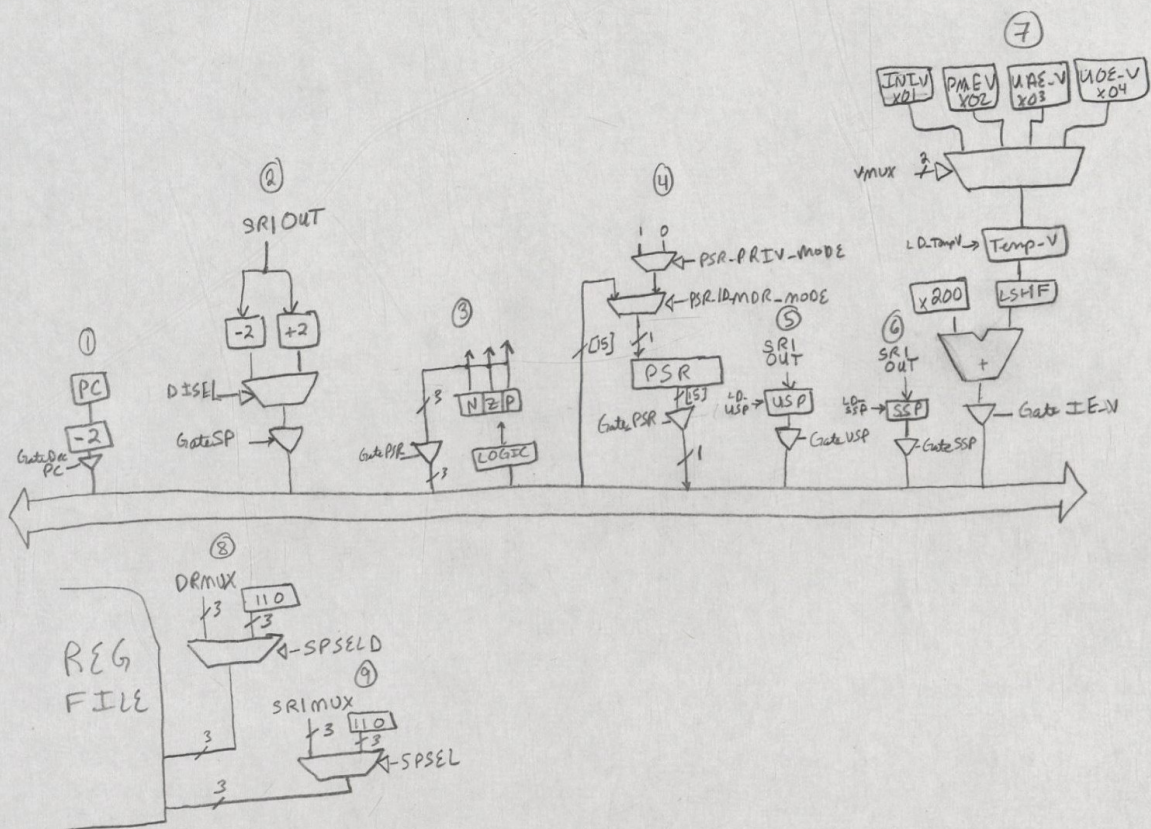 ①
PC
-2
GateDec
PC
②
SR1OUT
-2
+2
DISEL
GateSP
③
3
N Z P
GatePSR
3
LOGIC
④
1 0
PSR-PRIV-MODE
[15]
1
PSR
[15]
GatePSR
1
⑤
SR1
OUT
LD-
USP
USP
GateUSP
⑥
SR1
OUT
LD-
SSP
SSP
GateSSP
⑦
INI-V
x01
PMEV
x02
UAE-V
x03
UOE-V
x04
VMUX
2
LD-TempV
Temp-V
x200
LSHF
+
Gate IE-V
⑧
DRMUX
110
3
3
SPSELD
REG
FILE
3
⑨
SR1MUX
110
3
3
SPSEL
3